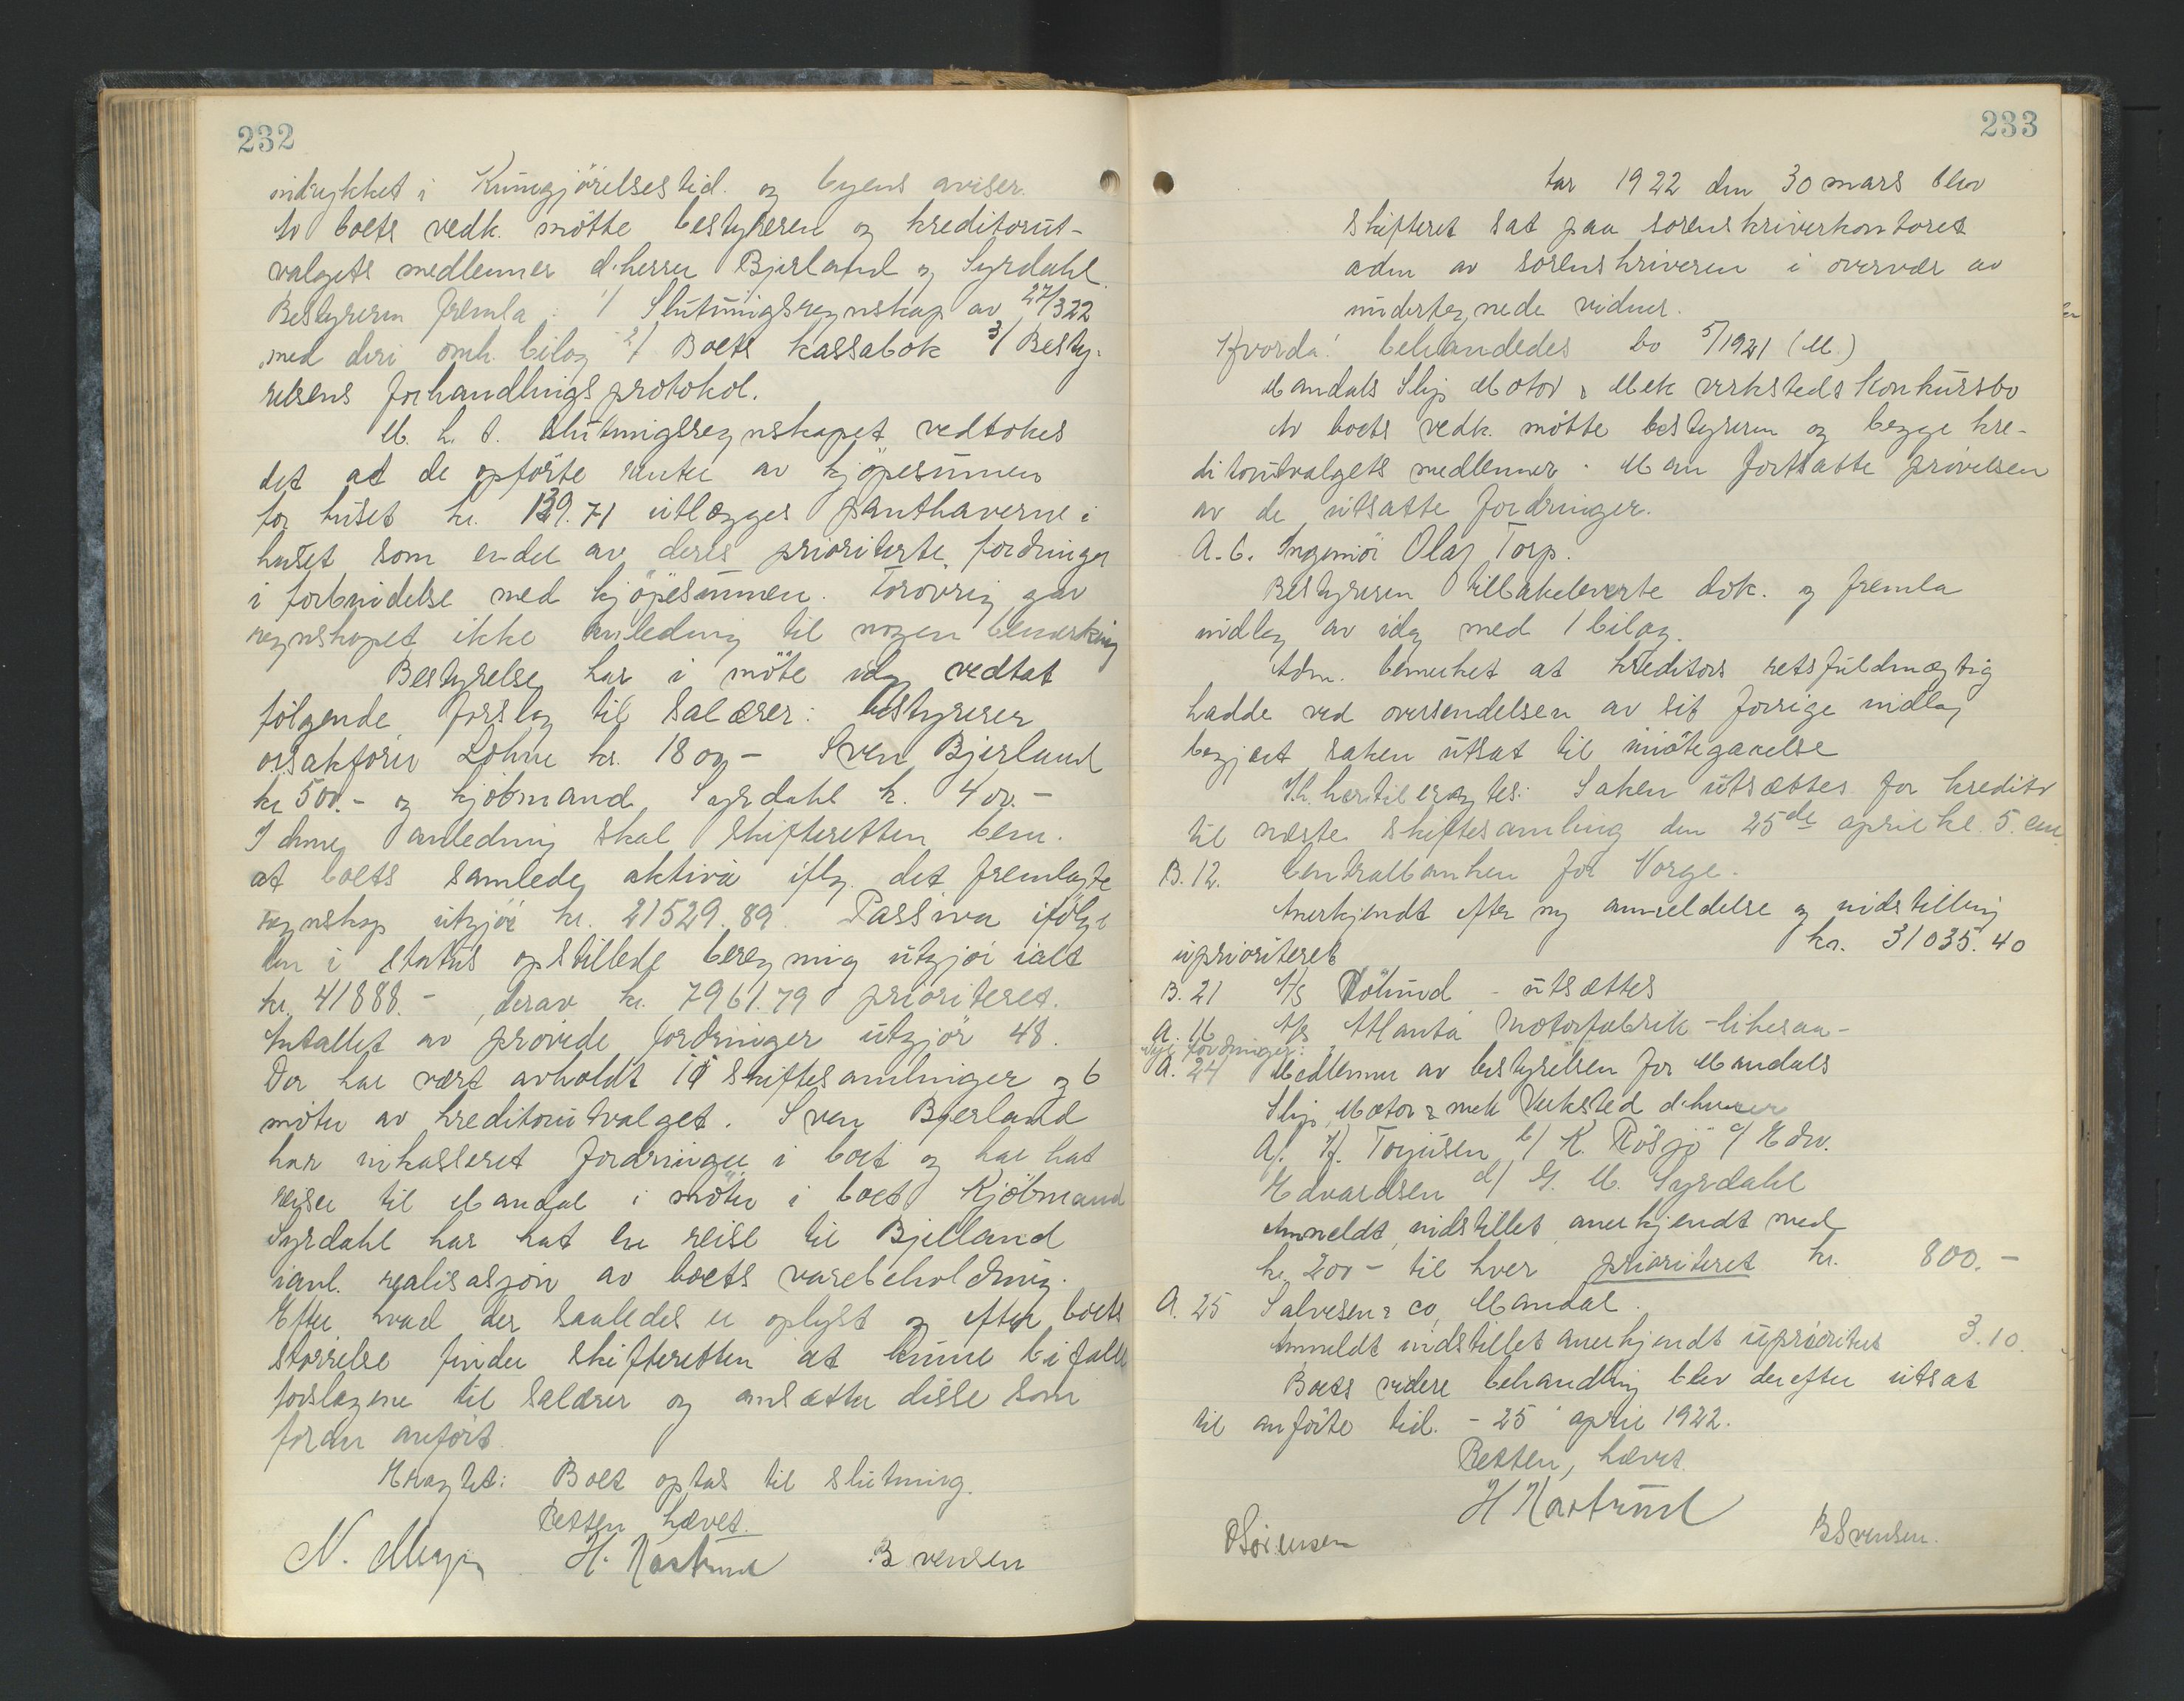 232
indrykket i Kungjörelsestid. og byens aviser.
Av boets vedk. mötte bestyreren og kreditorut-
valgets medlemmer d'herrer Bjerland og Syrdahl.
Bestyreren fremla: 1/ Slutningsregnskap av 27/3 22
med deri omh. bilag 2/ Boets kassabok 3/ Besty-
relsens forhandlingsprotokol.
M. h. t. slutningsregnskapet vedtokes
det at de opförte renter av kjöpesummen
for huset kr. 139.71 utlægges panthaverne i
huset som endel av deres prioriterte fordringer
i forbindelse med kjöpesummen. Forövrig gav
regnskapet ikke anledning til nogen bemerkning
Bestyrelsen har i möte idag vedtat
fölgende forslag til salærer: bestyreren
o.r.sakförer Lohne kr. 1800,- Sven Bjerland
kr 500.- og kjöbmand Syrdahl kr. 400.-
I denne anledning skal skifteretten bem.
at boets samlede aktiva iflg. det fremlagte
regnskap utgjör kr. 21529.89. Passiva ifölge
den i status opstillede beregning utgjör ialt
kr. 41888.- , derav kr. 7961.79 prioriteret.
Antallet av prövede fordringer utgjör 48.
Der har vært avholdt 10 skiftesamlinger og 6
möter av kreditorutvalget. Sven Bjerland
har inkasseret fordringer i boet og har hat
reiser til Mandal i möter i boet Kjöbmand
Syrdahl har hat en reise til Bjelland
i anl. realisasjon av boets varebeholdning.
Efter hvad der saaledes er oplyst og efter boets
störrelse finder skifteretten at kunne bifalde
forslagene til salærer og ansætter disse som
foran anfört.
Eragtet: Boet optas til slutning.
Retten hævet.
N. H. Nastrud B vensen
233
Aar 1922 den 30 mars blev
skifteret sat paa sorenskriverkontoret
adm av sorenskriveren i overvær av
undertegnede vidner.
Hvorda: behandledes bo 5/1921 (M.)
Mandals Slip Motor & Mek verksteds Konkursbo
Av boets vedk. mötte bestyreren og begge kre-
ditorutvalgets medlemmer. Man fortsatte prövelsen
av de utsatte fordringer.
A. 6. Ingeniör Olaf Torp.
Bestyreren tilbakeleverte dok. og fremla
indlæg av idag med 1 bilag.
Adm. bemerket at kreditors retsfuldmægtig
hadde ved oversendelsen av sit forrige indlæg
begjært saken utsat til imötegaaelse
Ih. hertil eragtes: Saken utsættes for kreditor
til næste skiftesamling den 25de april kl. 5. em
B. 12. Centralbanken for Norge.
Anerkjendt efter ny anmeldelse og indstilling
uprioriteret kr. 31035.40
B. 21 A/s - utsættes
A. 16 A/s Atlanta motorfabrik - likesaa -
Nye fordringer:
A. 24 Medlemmer av bestyrelsen for Mandals
Slip, Motor & mek Verksted d'herrer
a/. H. Torjusen b/ K. Rösjö c/ Edv.
Edvardsen d/ G. M. Syrdahl
Anmeldt, indstillet, anerkjendt med
kr. 200 - til hver prioriteret kr. 800.-
A. 25 Salvesen & co, Mandal.
Anmeldt indstillet anerkjendt uprioritert 3.10.
Boets videre behandling blev derefter utsat
til anförte tid. - 25 april 1922.
Retten hævet.
H Nastrud
O Sörensen B Svensen.